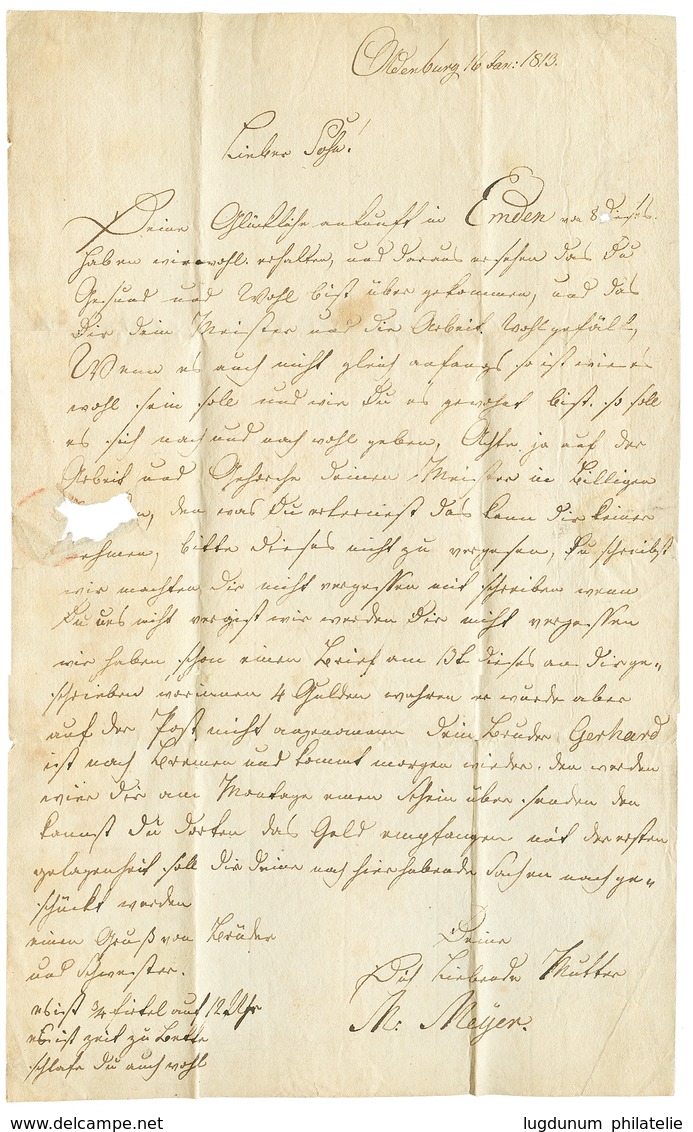 Oldenburg 16 Jan: 1813.
Lieber Sohn!
Deine Glückliche ankunft in Emden von 8 dieses.
haben wir wohl erhalten, und daraus ersehen das Du
Gesund und Wohl bist über gekommen, und das
Dir dein Meister und die Arbeit Wohl gefält,
Wenn es auch nicht gleich anfangs so ist wie es
wohl sein soll und wie Du es gewohnt bist. so soll
es sich nach und nach wohl geben, Achte ja auf der
Arbeit und Gehorche deinen Meister in billigen
den was Du erlernest das kann dir keiner
nehmen, bitte dieses nicht zu vergessen, Du schreibst
wir machten dir nicht vergessen mit schreiben wenn
Du uns nicht vergist wir werden Dir nicht vergessen
wir haben schon einen Brief am 13t dieses an dir ge„
schrieben worinnen 4 Gulden wahren er wurde aber
auf der Post nicht angenommen dein Bruder Gerhard
ist nach Bremen und kommt morgen wieder. den werden
wir dir am Montage einen Schein über senden den
kannst Du dorten das Geld empfangen mit der ersten
gelagenheit soll dir deine noch hier habende Sachen nach ge„
schückt werden
einen Gruß von Brüder
und Schwester.
es ist 3/4 tirtel auf 12 Uhr
es ist zeit zu Bette
schlafe du auch wohl
Deine
Dich Liebende Mutter
M: Meyer.
www.delcampe.net
lugdunum philatelie